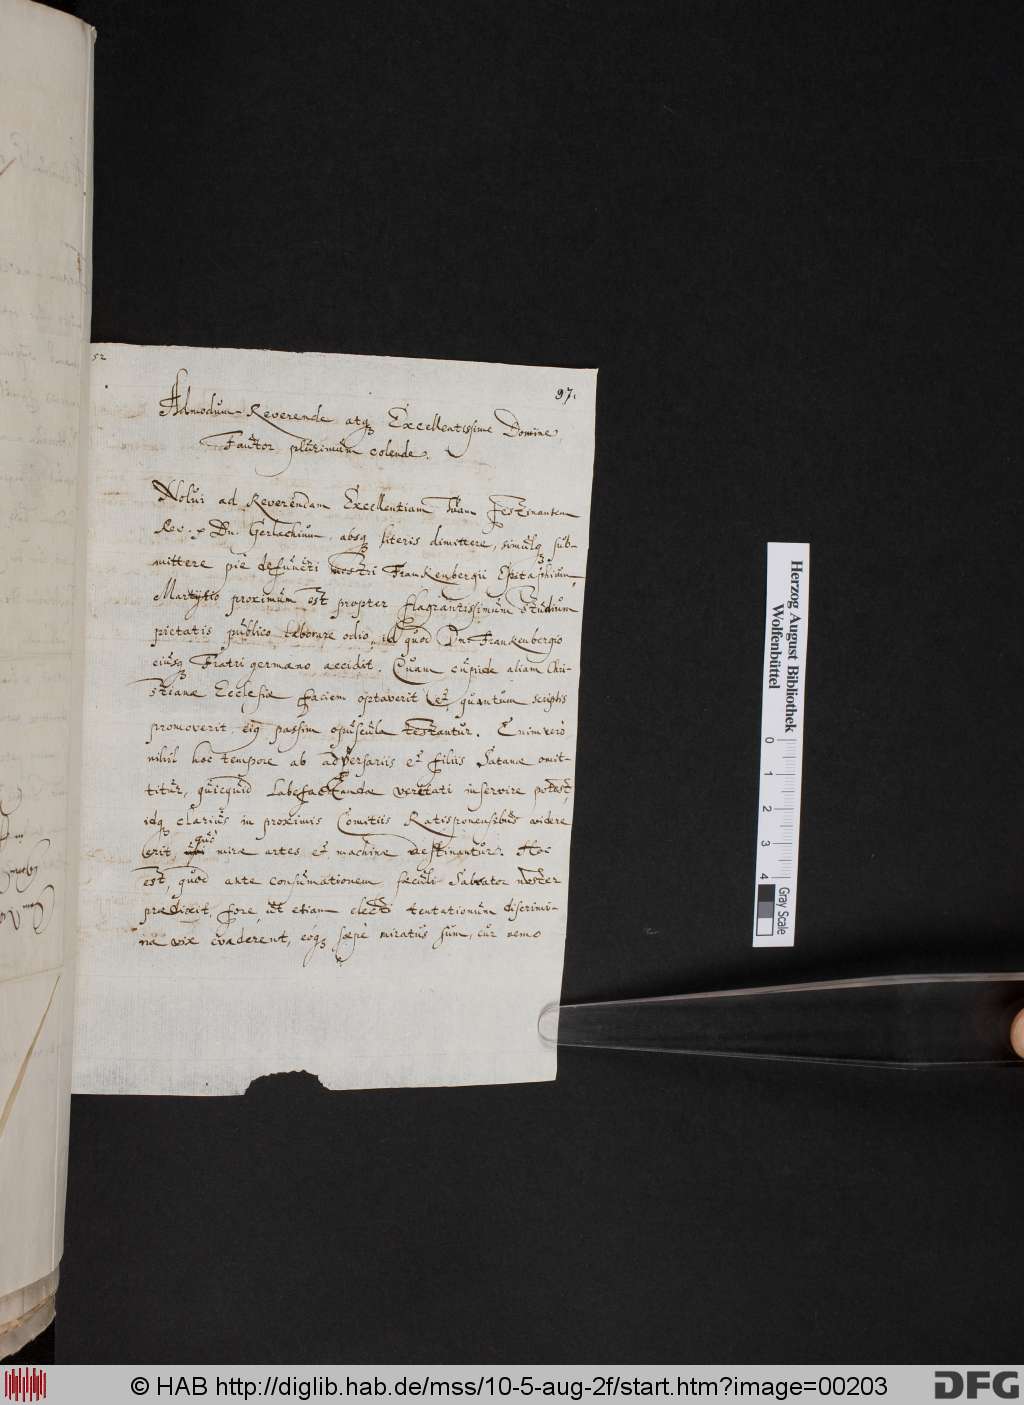 52
97.
Admodum Reverende atq Excellentissime Domine,
Fautor plurimum colende.
Nolui ad Reverendam Excellentiam Tuam festinantem
Rev. Dn. Gerlachium, absq literis dimittere, simulq sub-
mittere pie defuncti nostri Frankenbergii Epitaphium,
Martyrio proximum est propter flagrantissimum studium
pietatis publico laborare odio, id quod Dn Frankenbergio
eiusq Fratri germano accidit. Quam cupide aliam Chri-
stianæ Ecclesiæ faciem optaverit et quantum scriptis
promoverit, eiq passim opuscula testantur. Enimvero
nihil hoc tempore ab adversariis et filiis Satanæ omit-
titur, quicquid labefactandæ veritati inservire potest,
idq clarius in proximis Comitiis Ratisponensibus videre
erit, quo miræ artes et machinæ destinantur. Hoc
est, quod ante consumationem sæculi Salvator noster
prædixit fore, ut etiam electi tentationum discrimi-
na vix evaderent, eoq sæpe miratus sum, cur nemo
Herzog August Bibliothek
Wolfenbüttel
0 1 2 3 4
Gray Scale
© HAB http://diglib.hab.de/mss/10-5-aug-2f/start.htm?image=00203
DFG